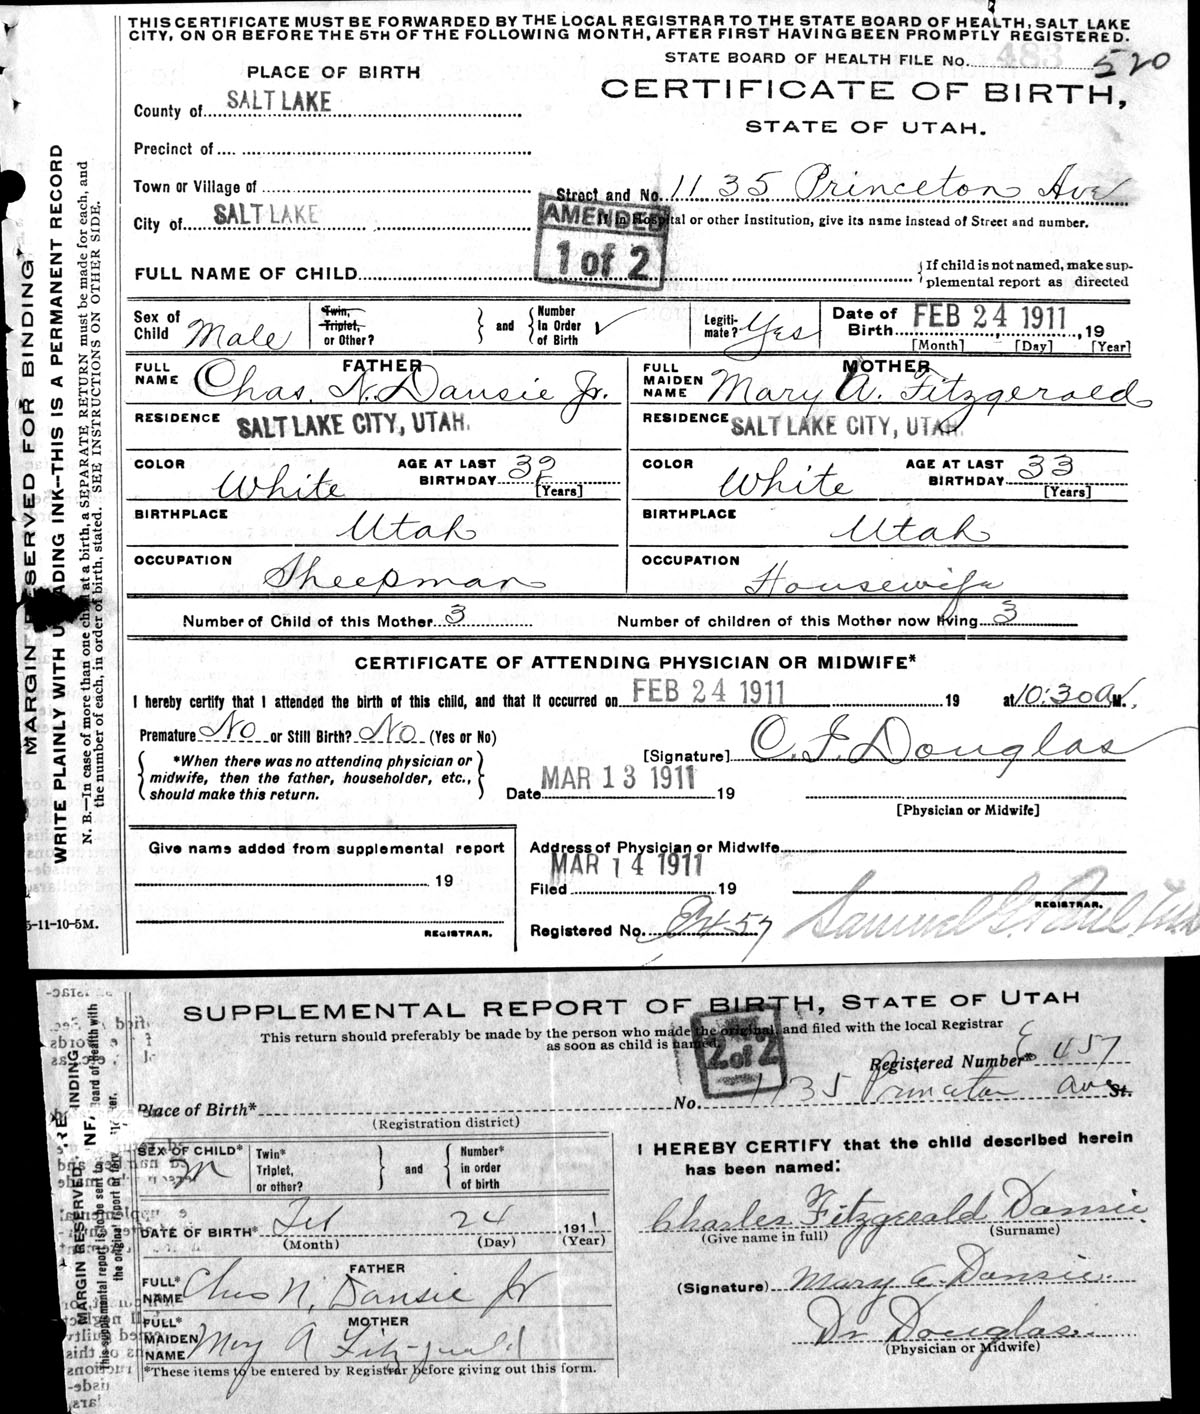 THIS CERTIFICATE MUST BE FORWARDED BY THE LOCAL REGISTRAR TO THE STATE BOARD OF HEALTH, SALT LAKE
CITY, ON OR BEFORE THE 5TH OF THE FOLLOWING MONTH, AFTER FIRST HAVING BEEN PROMPTLY REGISTERED.
STATE BOARD OF HEALTH FILE No. 483 520
PLACE OF BIRTH
CERTIFICATE OF BIRTH,
STATE OF UTAH.
County of SALT LAKE
Precinct of
Town or Village of
Street and No. 1135 Princeton Ave
City of SALT LAKE
If in Hospital or other Institution, give its name instead of Street and number.
AMENDED
1 of 2
FULL NAME OF CHILD
If child is not named, make sup-
plemental report as directed
Sex of Child Male
Twin, Triplet, or Other? and Number In Order of Birth
Legiti-mate? Yes
Date of Birth FEB 24 1911, 19
[Month] [Day] [Year]
FATHER
FULL NAME Chas. N. Dansie Jr.
MOTHER
FULL MAIDEN NAME Mary A. Fitzgerald
RESIDENCE SALT LAKE CITY, UTAH.
RESIDENCE SALT LAKE CITY, UTAH.
COLOR White AGE AT LAST BIRTHDAY 32 [Years]
COLOR White AGE AT LAST BIRTHDAY 33 [Years]
BIRTHPLACE Utah
BIRTHPLACE Utah
OCCUPATION Sheepman
OCCUPATION Housewife
Number of Child of this Mother 3
Number of children of this Mother now living 3
CERTIFICATE OF ATTENDING PHYSICIAN OR MIDWIFE*
I hereby certify that I attended the birth of this child, and that it occurred on FEB 24 1911 19 at 10:30 a M.
Premature No or Still Birth? No (Yes or No)
*When there was no attending physician or
midwife, then the father, householder, etc.,
should make this return.
[Signature] C. F. Douglas
Date MAR 13 1911 19
[Physician or Midwife]
Give name added from supplemental report
19
REGISTRAR.
Address of Physician or Midwife
Filed MAR 14 1911 19
REGISTRAR.
Registered No. 457
Samuel G. Paul
5-11-10-5M.
MARGIN RESERVED FOR BINDING
WRITE PLAINLY WITH UNFADING INK—THIS IS A PERMANENT RECORD
N. B.—In case of more than one child at a birth, a SEPARATE RETURN must be made for each, and
the number of each, in order of birth, stated. SEE INSTRUCTIONS ON OTHER SIDE.
SUPPLEMENTAL REPORT OF BIRTH, STATE OF UTAH
This return should preferably be made by the person who made the original, and filed with the local Registrar
as soon as child is named.
2 of 2
Registered Number* 457
Place of Birth* No. 1135 Princeton Ave St.
(Registration district)
SEX OF CHILD* M
Twin* Triplet, or other? and Number* in order of birth
DATE OF BIRTH* Feb 24 1911
(Month) (Day) (Year)
FATHER
FULL* NAME Chas N. Dansie Jr
MOTHER
FULL* MAIDEN NAME Mary A Fitzgerald
*These items to be entered by Registrar before giving out this form.
I HEREBY CERTIFY that the child described herein
has been named:
Charles Fitzgerald Dansie
(Give name in full) (Surname)
(Signature) Mary A Dansie
Dr Douglas
(Physician or Midwife)
MARGIN RESERVED